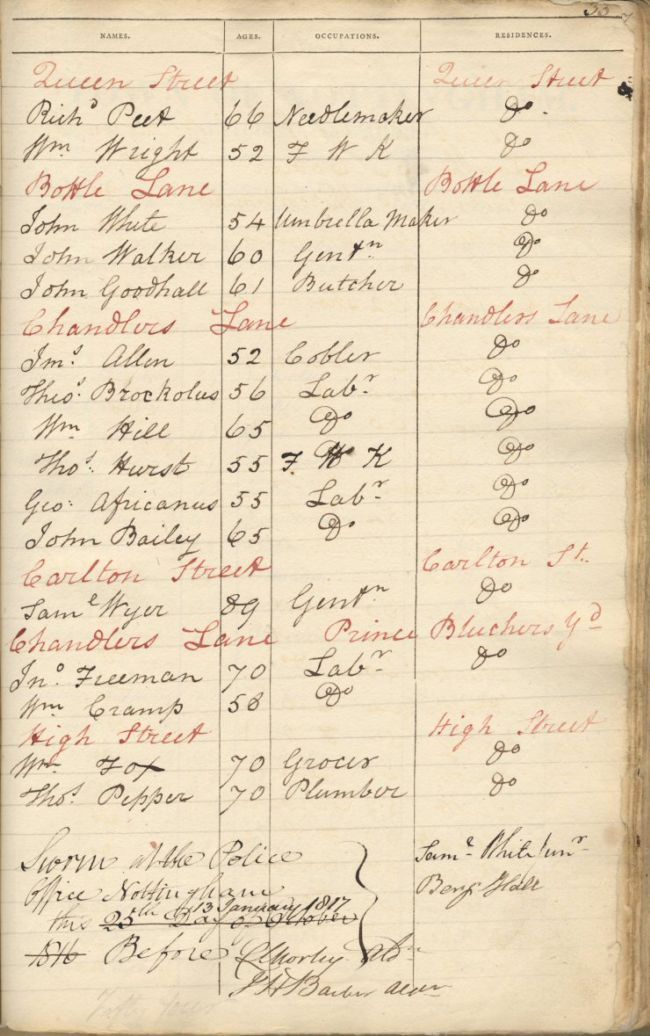 33
NAMES. AGES. OCCUPATIONS. RESIDENCES.
Queen Street Queen Street
Richd Peet 66 Needlemaker Do
Wm Wright 52 F W K Do
Bottle Lane Bottle Lane
John White 54 Umbrella Maker Do
John Walker 60 Gentn Do
John Goodhall 61 Butcher Do
Chandlers Lane Chandlers Lane
Jms Allen 52 Cobler Do
Thos Brockolus 56 Labr Do
Wm Hill 65 Do Do
Thos Hurst 55 F W K Do
Geo: Africanus 55 Labr Do
John Bailey 65 Do Do
Carlton Street Carlton St.
Saml Wyer 89 Gentn Do
Chandlers Lane Prince Bluchers Yd
Jno Freeman 70 Labr Do
Wm Cramp 58 Do
High Street High Street
Wm Fox 70 Grocer Do
Thos Pepper 70 Plumber Do
Sworn at the Police
Saml White
Office Nottingham
Benj Hall
13 January 1817
this 25th Day of October
1816 Before C Morley
Barber Alder